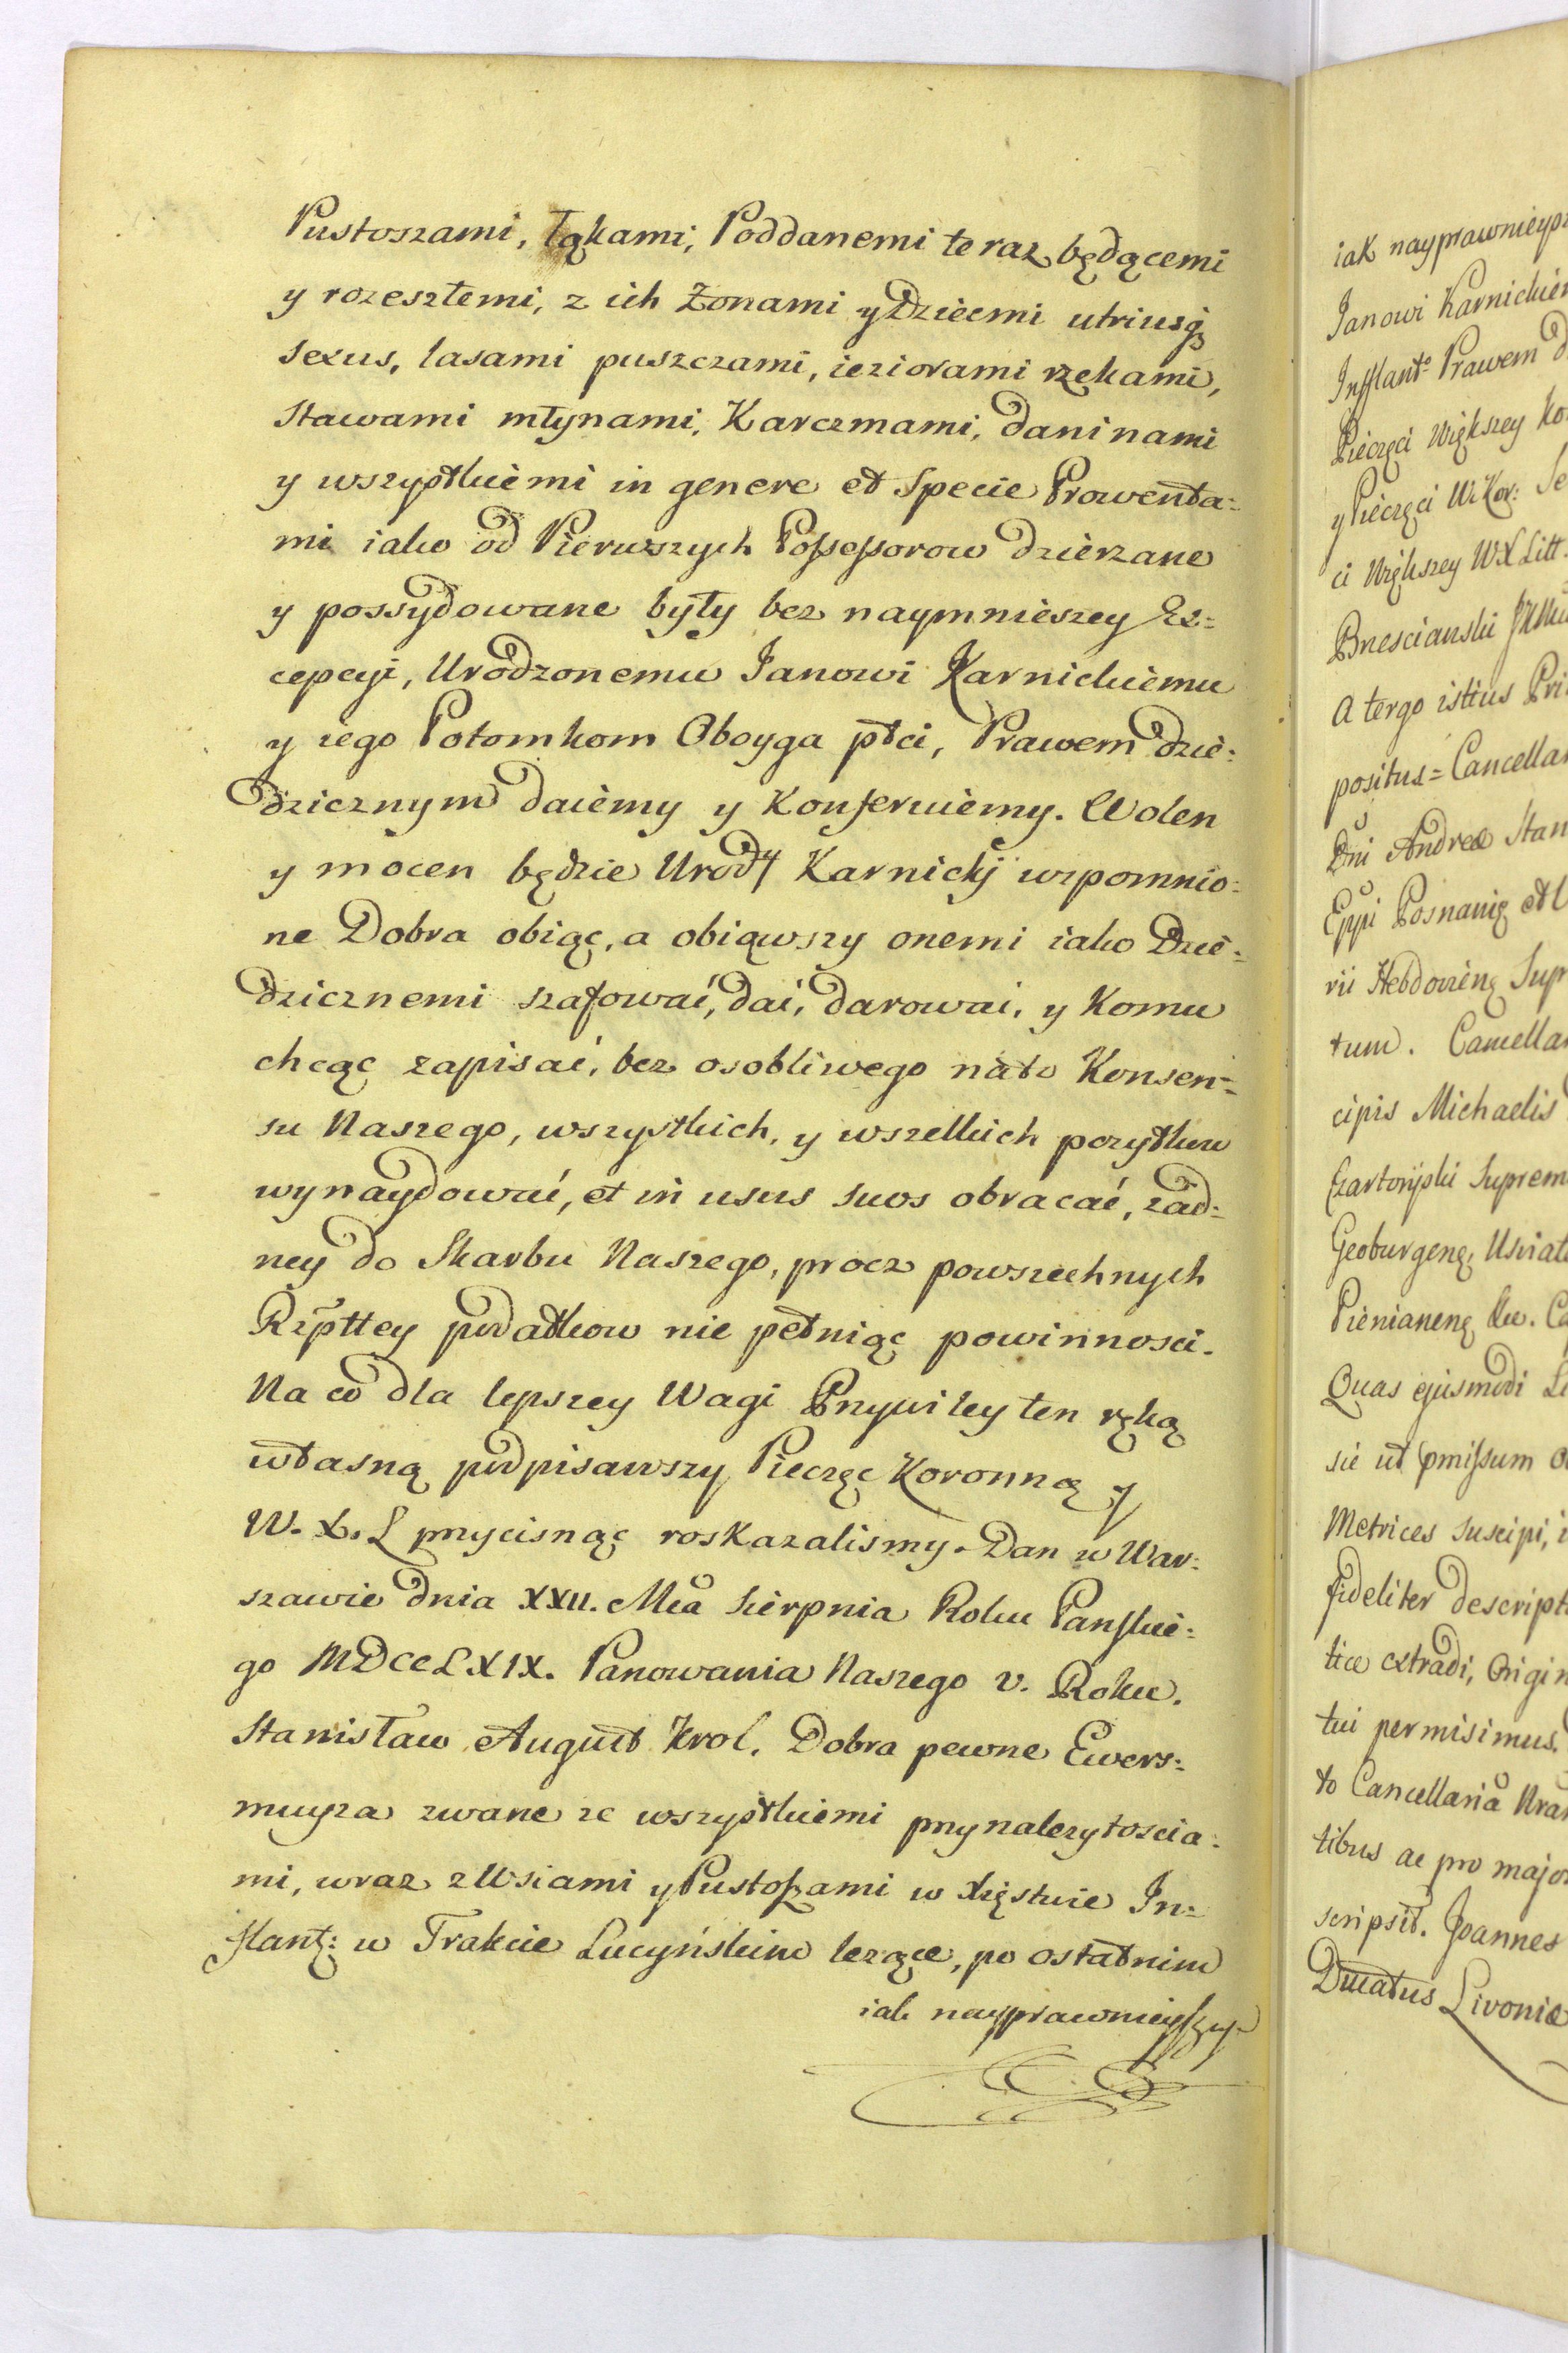 Pustoszami, Łąkami, Poddanemi teraz będącemi
y rozeszłemi, z ich Żonami y Dziecmi utriusq
sexus, lasami puszczami, ieziorami rzekami,
Stawami młynami, Karczmami, daninami
y wszystkiemi in genere et Specie Prowenta=
mi iako od Pierwszych Possessorow dzierzane
y possydowane były bez naymnieszey Ex=
cepcyi, Urodzonemu Janowi Karnickiemu
y iego Potomkom Oboyga płci, Prawem dzie=
dzicznym daiemy y Konferuiemy. Wolen
y mocen będzie Urody Karnicki wzpomnio=
ne Dobra obiąc, a obiąwszy onemi iako Dzie=
dzicznemi szafować, dać, darować, y Komu
chcąc zapisać, bez osobliwego nato Konsen=
su Naszego, wszystkich, y wszelkich pozytkow
wynaydować, et in usus suos obracać, zad=
ney do Skarbu Naszego, procz powszechnych
Rzpttey podatkow nie pełniąc powinnosci.
Na co dla lepszey Wagi Przywiley ten ręką
własną podpisawszy Pieczęc Koronną y
W. X. L przycisnąc roskazalismy. Dan w War=
szawie dnia XXII. Mca Sierpnia Roku Panskie=
go MDCCLXIX. Panowania Naszego V. Roku.
Stanisław August Krol. Dobra pewne Ewers=
muyza zwane ze wszystkiemi przynalezytoscia=
mi, wraz z Wsiami y Pustoszami w Xięstwie In=
flant: w Trakcie Lucyńskim lezące, po ostatnim
iak nayprawnieyszy=
iak nayprawnieysz
Janowi Karnickiem
Inflant Prawem d
Pieczęci Większey Ko
y Pieczęci W. Kor: Se
ci Większey WXLitt.
Brzescianski
A tergo istius Pri
positus = Cancellar
Dni Andreæ Stan
Eppi Posnanię et
rii Hebdovieng Supr
tum. Cancellar
cipis Michaelis
Czartoryski Suprem
Geoburgeng, Usviat
Pienianeng &c. Ca
Quas ejusmodi Li
sic ut pmissum
Metrices suscipi, i
fideliter descript
tice extradi, Origin
tui permisimus.
to Cancellaria Nra
tibus ac pro major
scripsit. Joannes
Ducatus Livoniæ